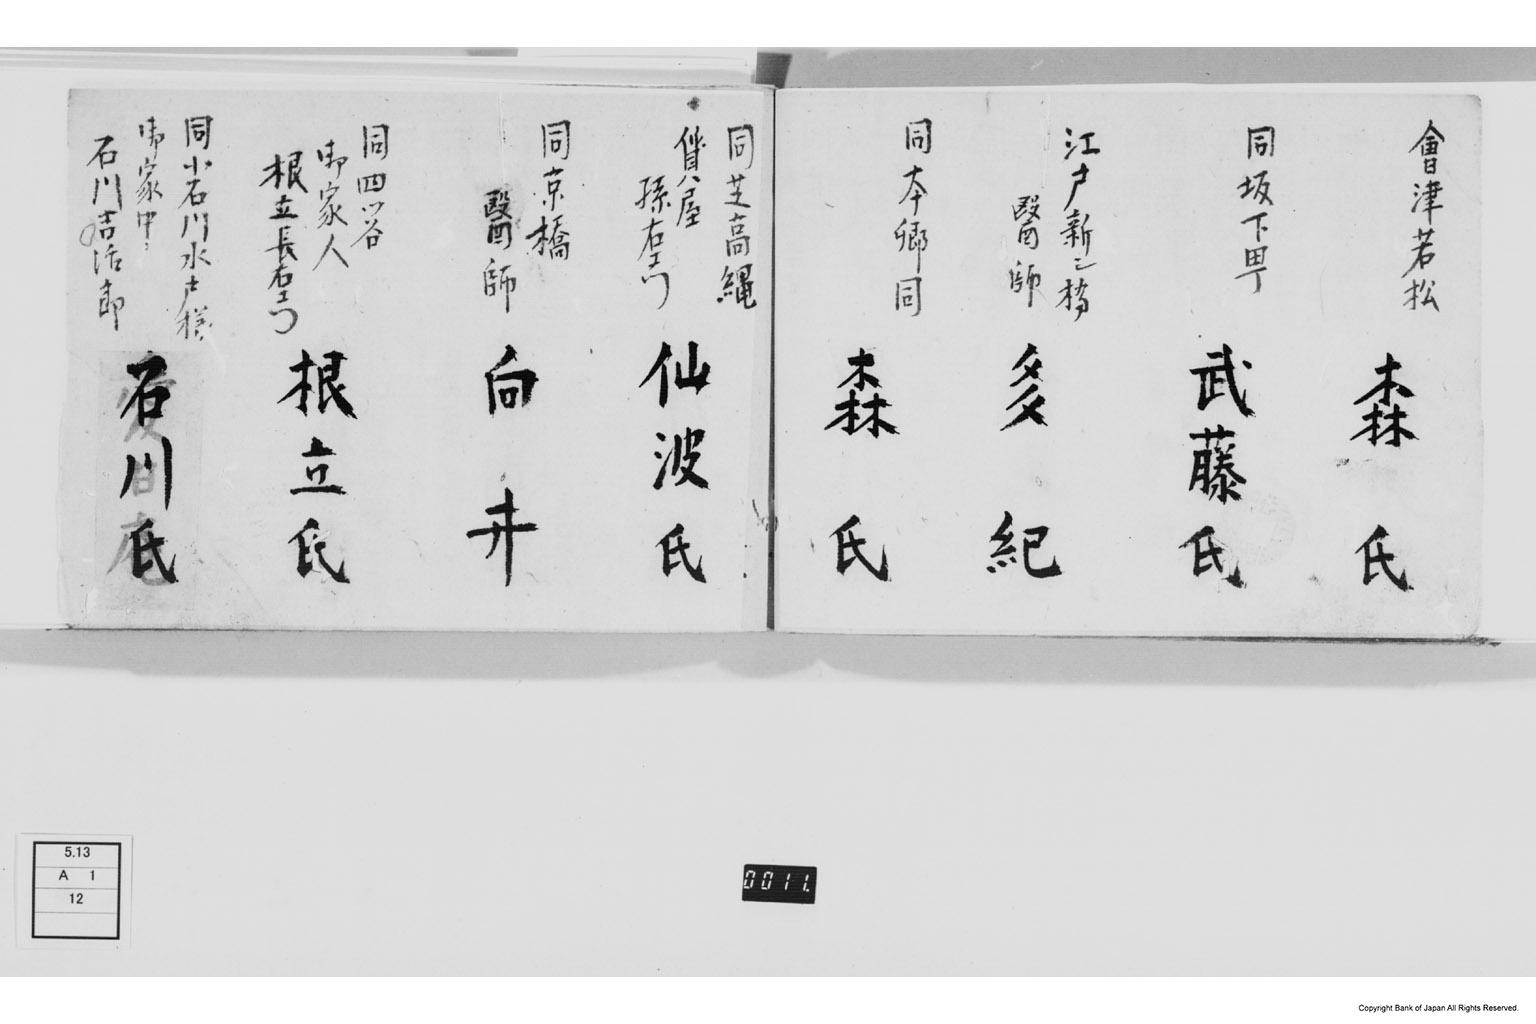 會津若松
森氏
同坂下町
武藤氏
江戸新シ橋
醫師
多紀
同本郷同
森氏
同芝高縄
貸屋
孫右エ門
仙波氏
同京橋
醫師
向井
同四ツ谷
御家人
根立長右エ門
根立氏
同小石川水戸様
御家中
石川吉活郎
石川氏
5.13
A 1
12
0011.
Copyright Bank of Japan All Rights Reserved.